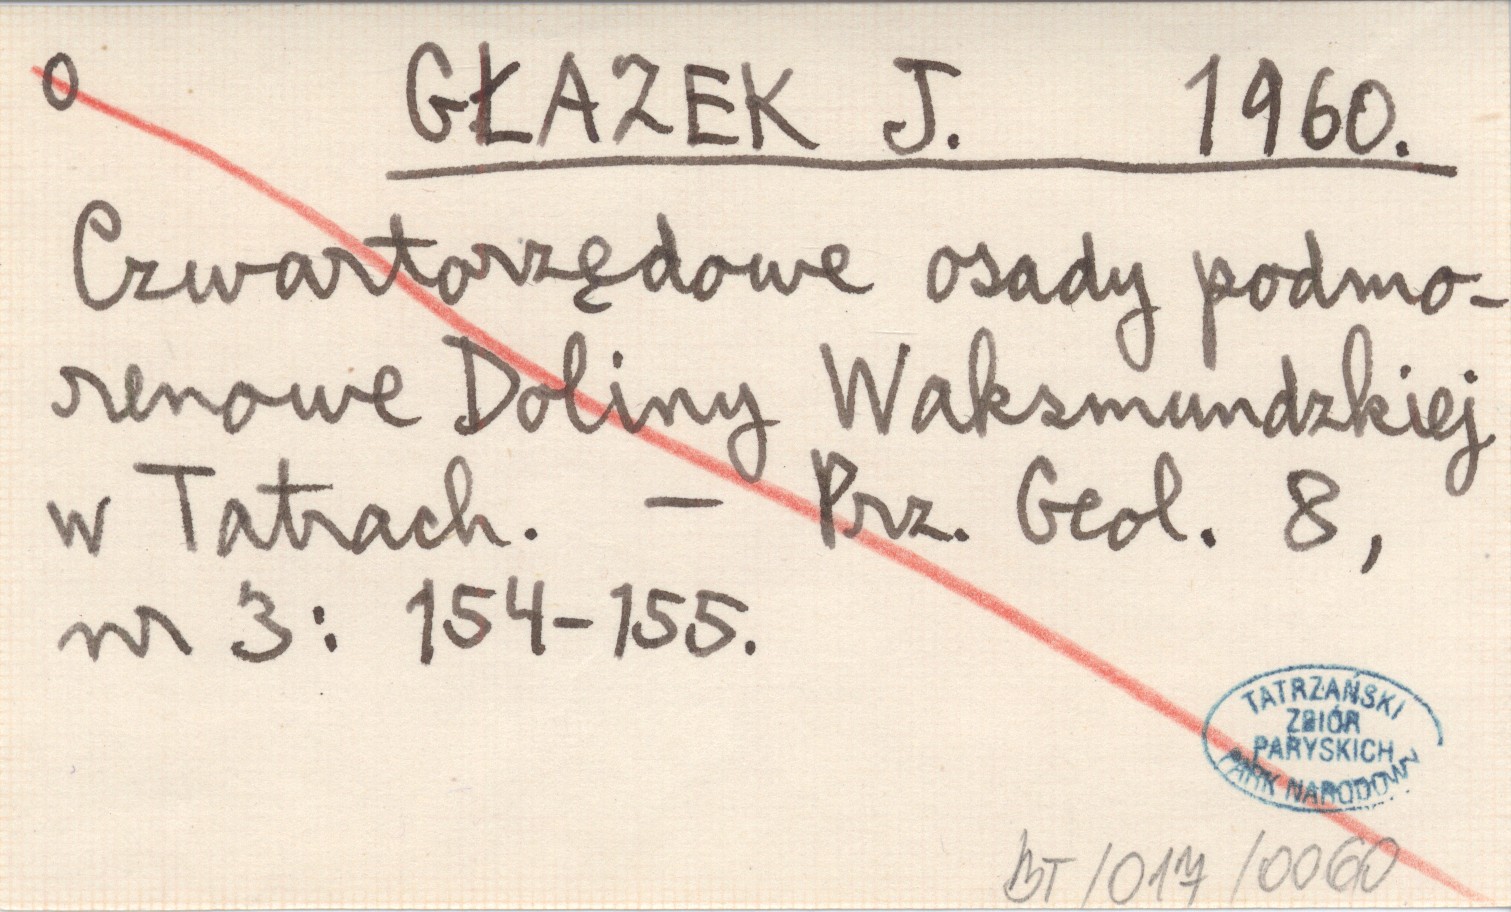 0 GŁAZEK J. 1960.
Czwartorzędowe osady podmo-
renowe Doliny Waksmundzkiej
w Tatrach. – Prz. Geol. 8,
nr 3: 154-155.
TATRZAŃSKI
ZBIÓR
PARYSKICH
PARK NARODOWY
BT/017/0060